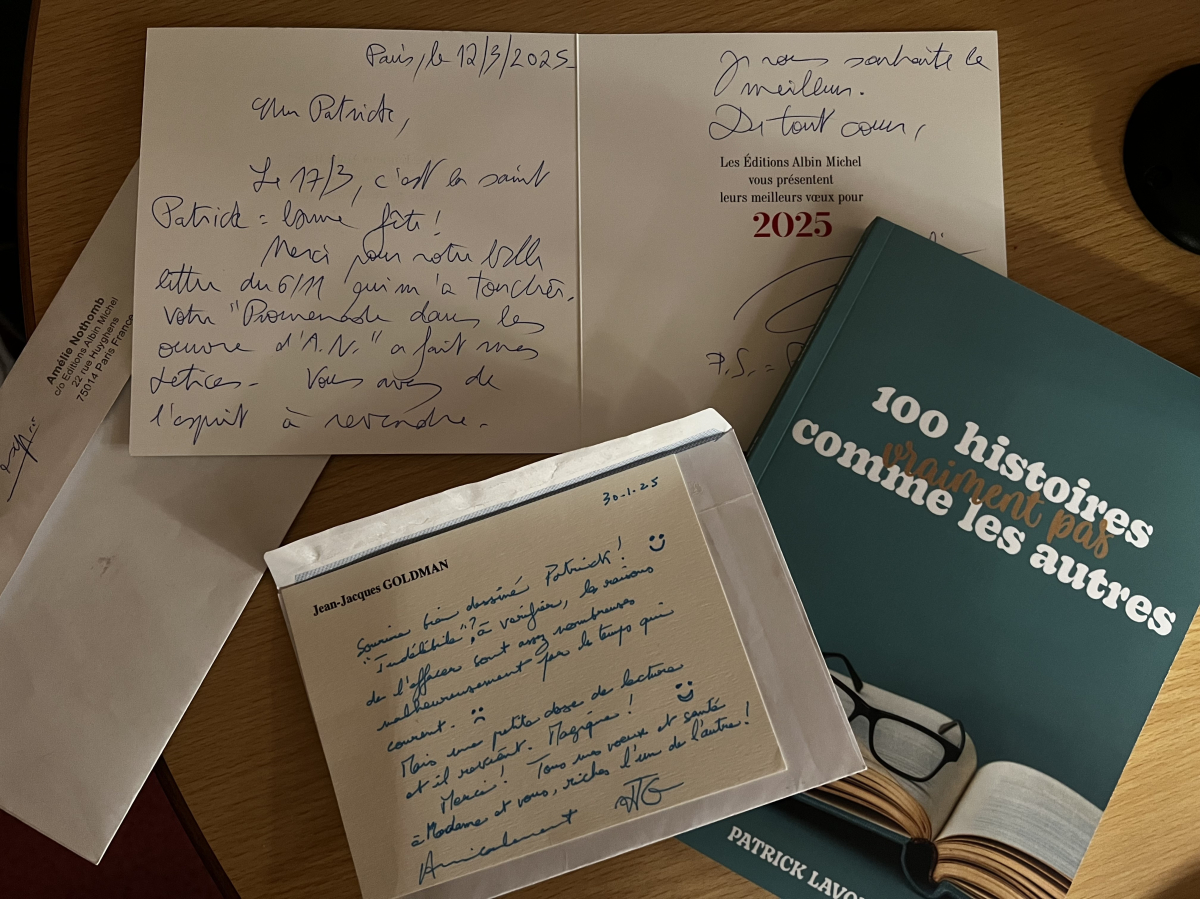 Paris, le 12/3/2025
Cher Patrick,
Le 17/3, c'est la saint
Patrick = bonne fête !
Merci pour votre belle
lettre du 6/11 qui m'a touchée.
Votre "Promenade dans les
œuvre d'A.N." a fait mes
délices. Vous avez de
l'esprit à revendre.
Je vous souhaite le
meilleur.
De tout cœur,
Les Éditions Albin Michel
vous présentent
leurs meilleurs vœux pour
2025
P.S. =
Amélie Nothomb
c/o Editions Albin Michel
22 rue Huyghens
75014 Paris France
30-1.25
Jean-Jacques GOLDMAN
Sourire bien dessiné Patrick !
"Indélébile"? à vérifier, les raisons
de l'effacer sont assez nombreuses
malheureusement par les temps qui
courent.
Mais une petite dose de lecture
et il revient. Magique !
Merci ! Tous mes vœux et santé
à Madame et vous, riches l'un de l'autre !
Amicalement JJG
100 histoires
vraiment pas
comme les autres
PATRICK LAVO